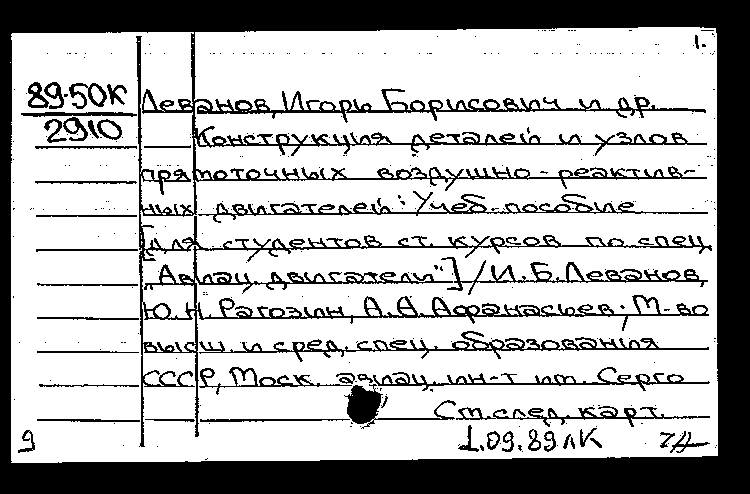 1.
89-50К Леванов, Игорь Борисович и др.
2910 Конструкция деталей и узлов
прямоточных воздушно-реактив-
ных двигателей: Учеб. пособие
[для студентов ст. курсов по спец.
„Авиац. двигатели"] / И. Б. Леванов,
Ю. Н. Рагозин, А. А. Афанасьев; М-во
высш. и сред. спец. образования
СССР, Моск. авиац. ин-т им. Серго
См. след. карт.
9 1.09.89 лК